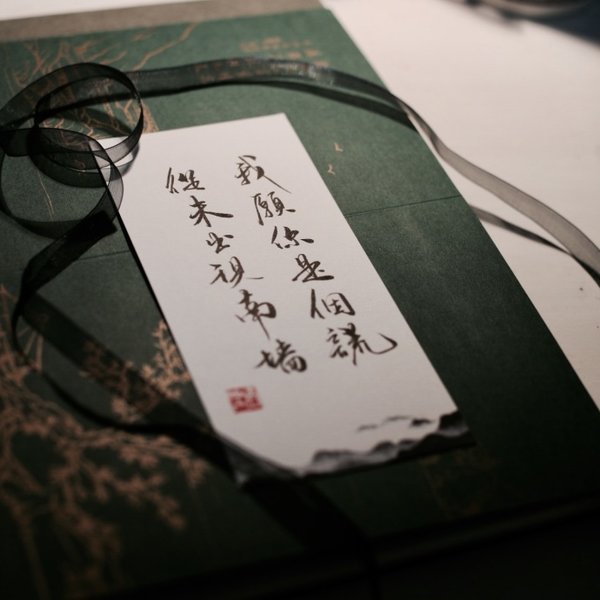 我願你是個謊
從未出現南墻